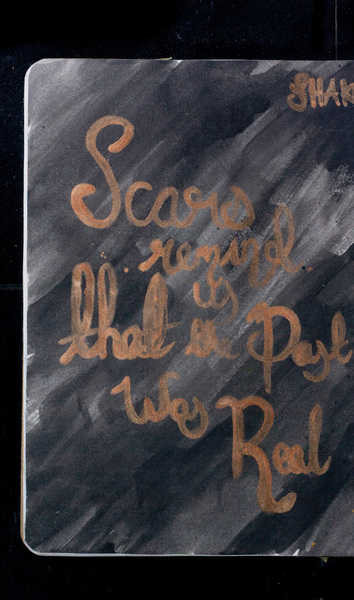 SHAK
Scars
remind
us
that the Past
Was
Real